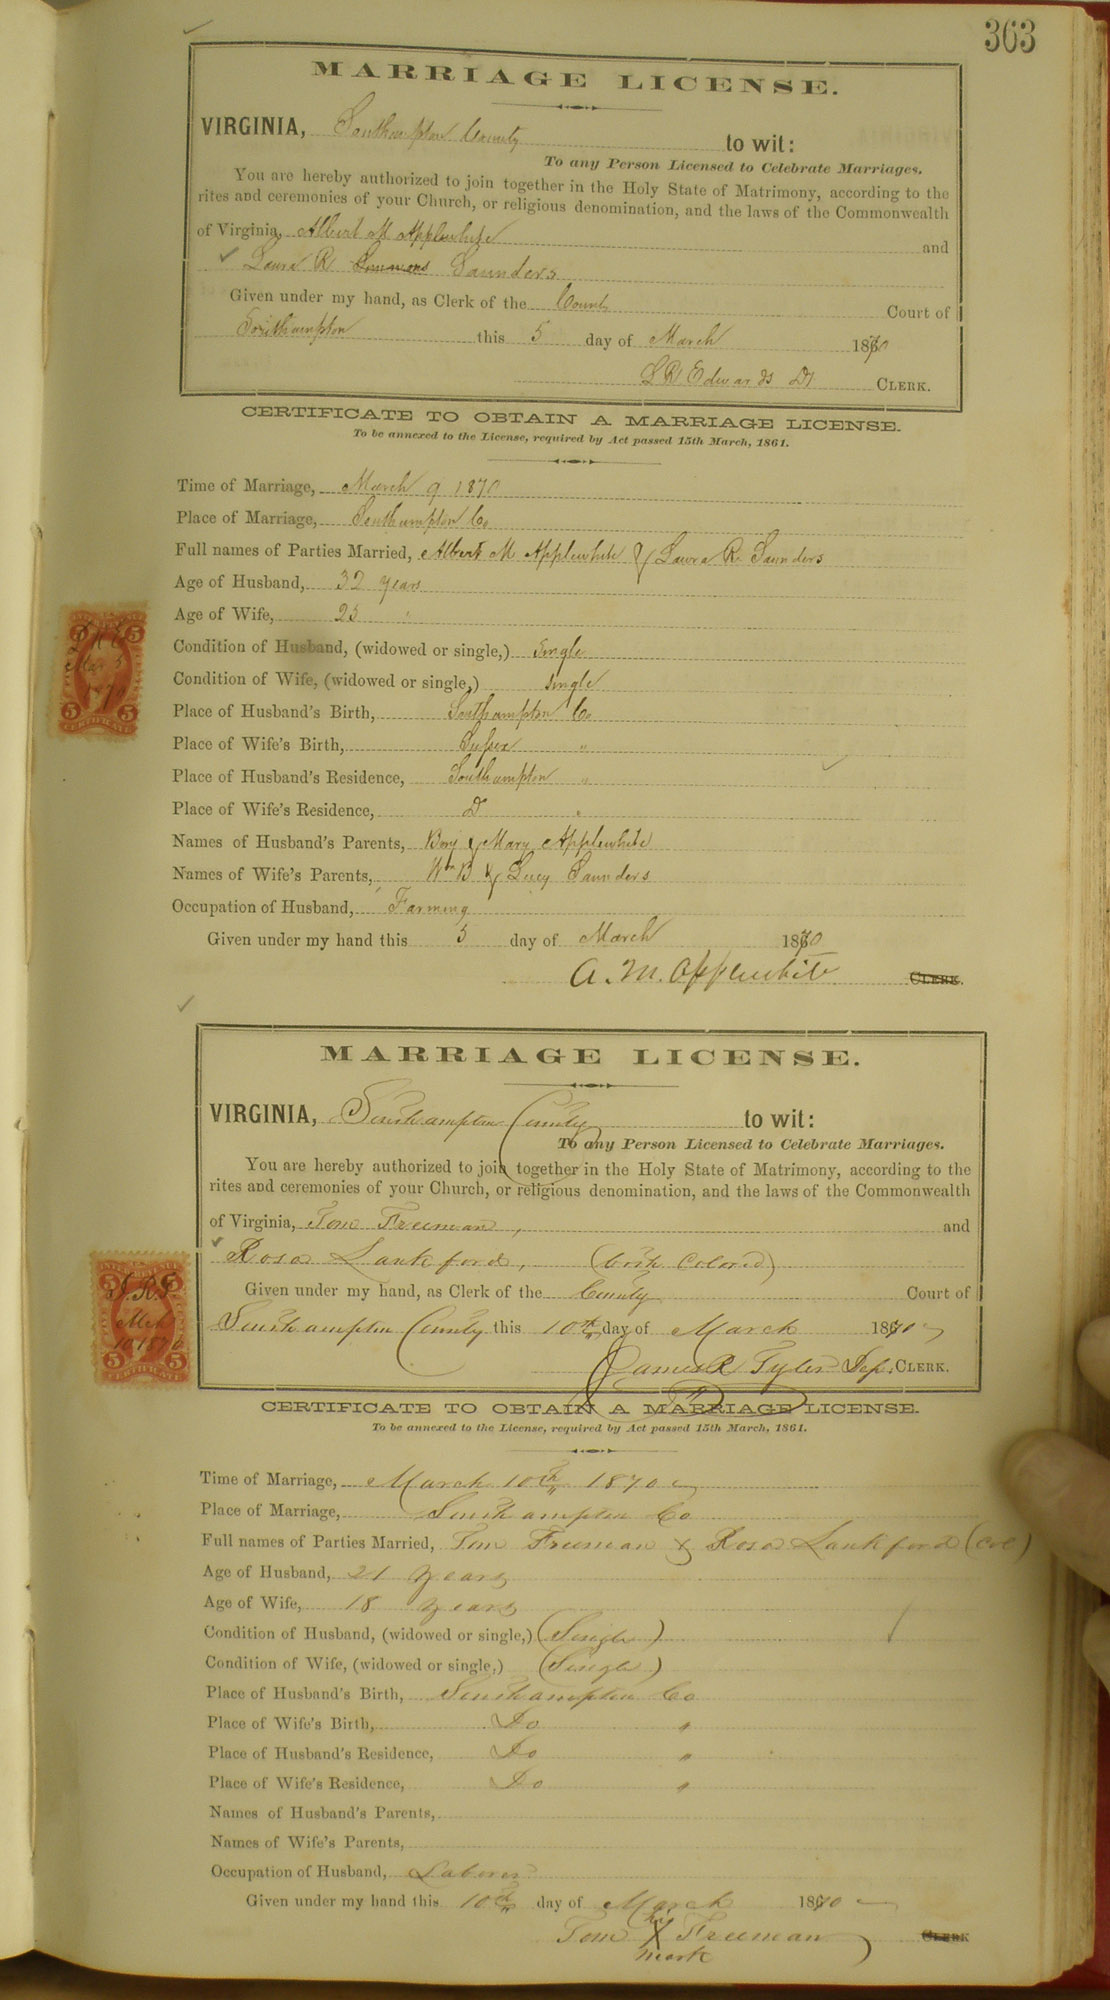 363
MARRIAGE LICENSE.
VIRGINIA, Southampton County to wit:
To any Person Licensed to Celebrate Marriages.
You are hereby authorized to join together in the Holy State of Matrimony, according to the
rites and ceremonies of your Church, or religious denomination, and the laws of the Commonwealth
of Virginia, Albert M Applewhite and
Laura R Simmons Saunders
Given under my hand, as Clerk of the County Court of
Southampton this 5 day of March 1870
L R Edwards CLERK.
CERTIFICATE TO OBTAIN A MARRIAGE LICENSE.
To be annexed to the License, required by Act passed 15th March, 1861.
Time of Marriage, March 9 1870
Place of Marriage, Southampton Co
Full names of Parties Married, Albert M Applewhite & Laura R. Saunders
Age of Husband, 32 years
Age of Wife, 23 "
Condition of Husband, (widowed or single,) single
Condition of Wife, (widowed or single,) single
Place of Husband's Birth, Southampton Co
Place of Wife's Birth, Sussex "
Place of Husband's Residence, Southampton "
Place of Wife's Residence, Do "
Names of Husband's Parents, Benj & Mary Applewhite
Names of Wife's Parents, Wm B & Lucy Saunders
Occupation of Husband, Farming
Given under my hand this 5 day of March 1870
A. M. Applewhite CLERK.
Mar 5
1870
MARRIAGE LICENSE.
VIRGINIA, Southampton County to wit:
To any Person Licensed to Celebrate Marriages.
You are hereby authorized to join together in the Holy State of Matrimony, according to the
rites and ceremonies of your Church, or religious denomination, and the laws of the Commonwealth
of Virginia, Tom Freeman, and
Rosa Lankford, (both Colored)
Given under my hand, as Clerk of the County Court of
Southampton County this 10th day of March 1870
James R Tyler Dep. CLERK.
J. R. T.
Mch
10 1870
CERTIFICATE TO OBTAIN A MARRIAGE LICENSE.
To be annexed to the License, required by Act passed 15th March, 1861.
Time of Marriage, March 10th 1870
Place of Marriage, Southampton Co
Full names of Parties Married, Tom Freeman & Rosa Lankford (Col)
Age of Husband, 21 years
Age of Wife, 18 years
Condition of Husband, (widowed or single,) (Single)
Condition of Wife, (widowed or single,) (Single)
Place of Husband's Birth, Southampton Co
Place of Wife's Birth, Do "
Place of Husband's Residence, Do "
Place of Wife's Residence, Do "
Names of Husband's Parents,
Names of Wife's Parents,
Occupation of Husband, Laborer
Given under my hand this 10th day of March 1870
his
Tom X Freeman CLERK
mark